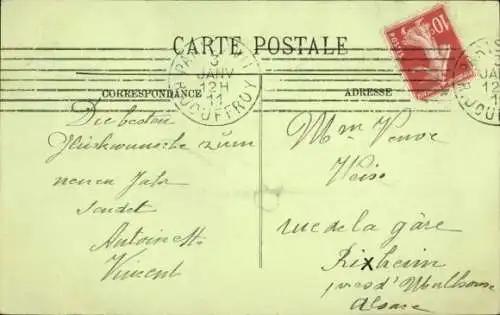 CARTE POSTALE
CORRESPONDANCE
ADRESSE
10c
JANV
12H
11
R. JOUFFROY
Die besten
Glückwunsche zum
neuen Jahr
sendet
Antoinette
Vincent
Mme Veuve
Weiss
rue de la gare
Rixheim
près d'Mulhouse
Alsace